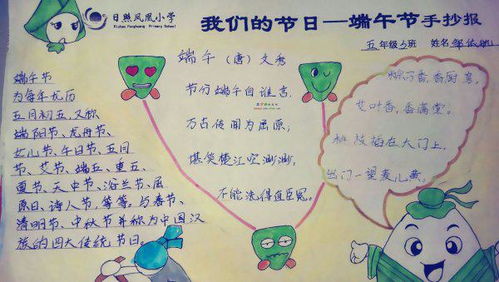 日照凤凰小学
Rizhao Fenghuang Primary School
我们的节日—端午节手抄报
五年级5班 姓名
端午节
为每年农历
五月初五,又称
端阳节、龙舟节、
女儿节、午日节、五月
节、艾节、端五、重五、
夏节、天中节、浴兰节、屈
原日、诗人节,等等。与春节、
清明节、中秋节并称为中国汉
族的四大传统节日。
端午(唐)文秀
节分端午自谁言,
万古传闻为屈原;
堪笑楚江空渺渺,
不能洗得直臣冤。
粽子香,香厨房,
艾叶香,香满堂。
桃枝插在大门上,
出门一望麦儿黄。